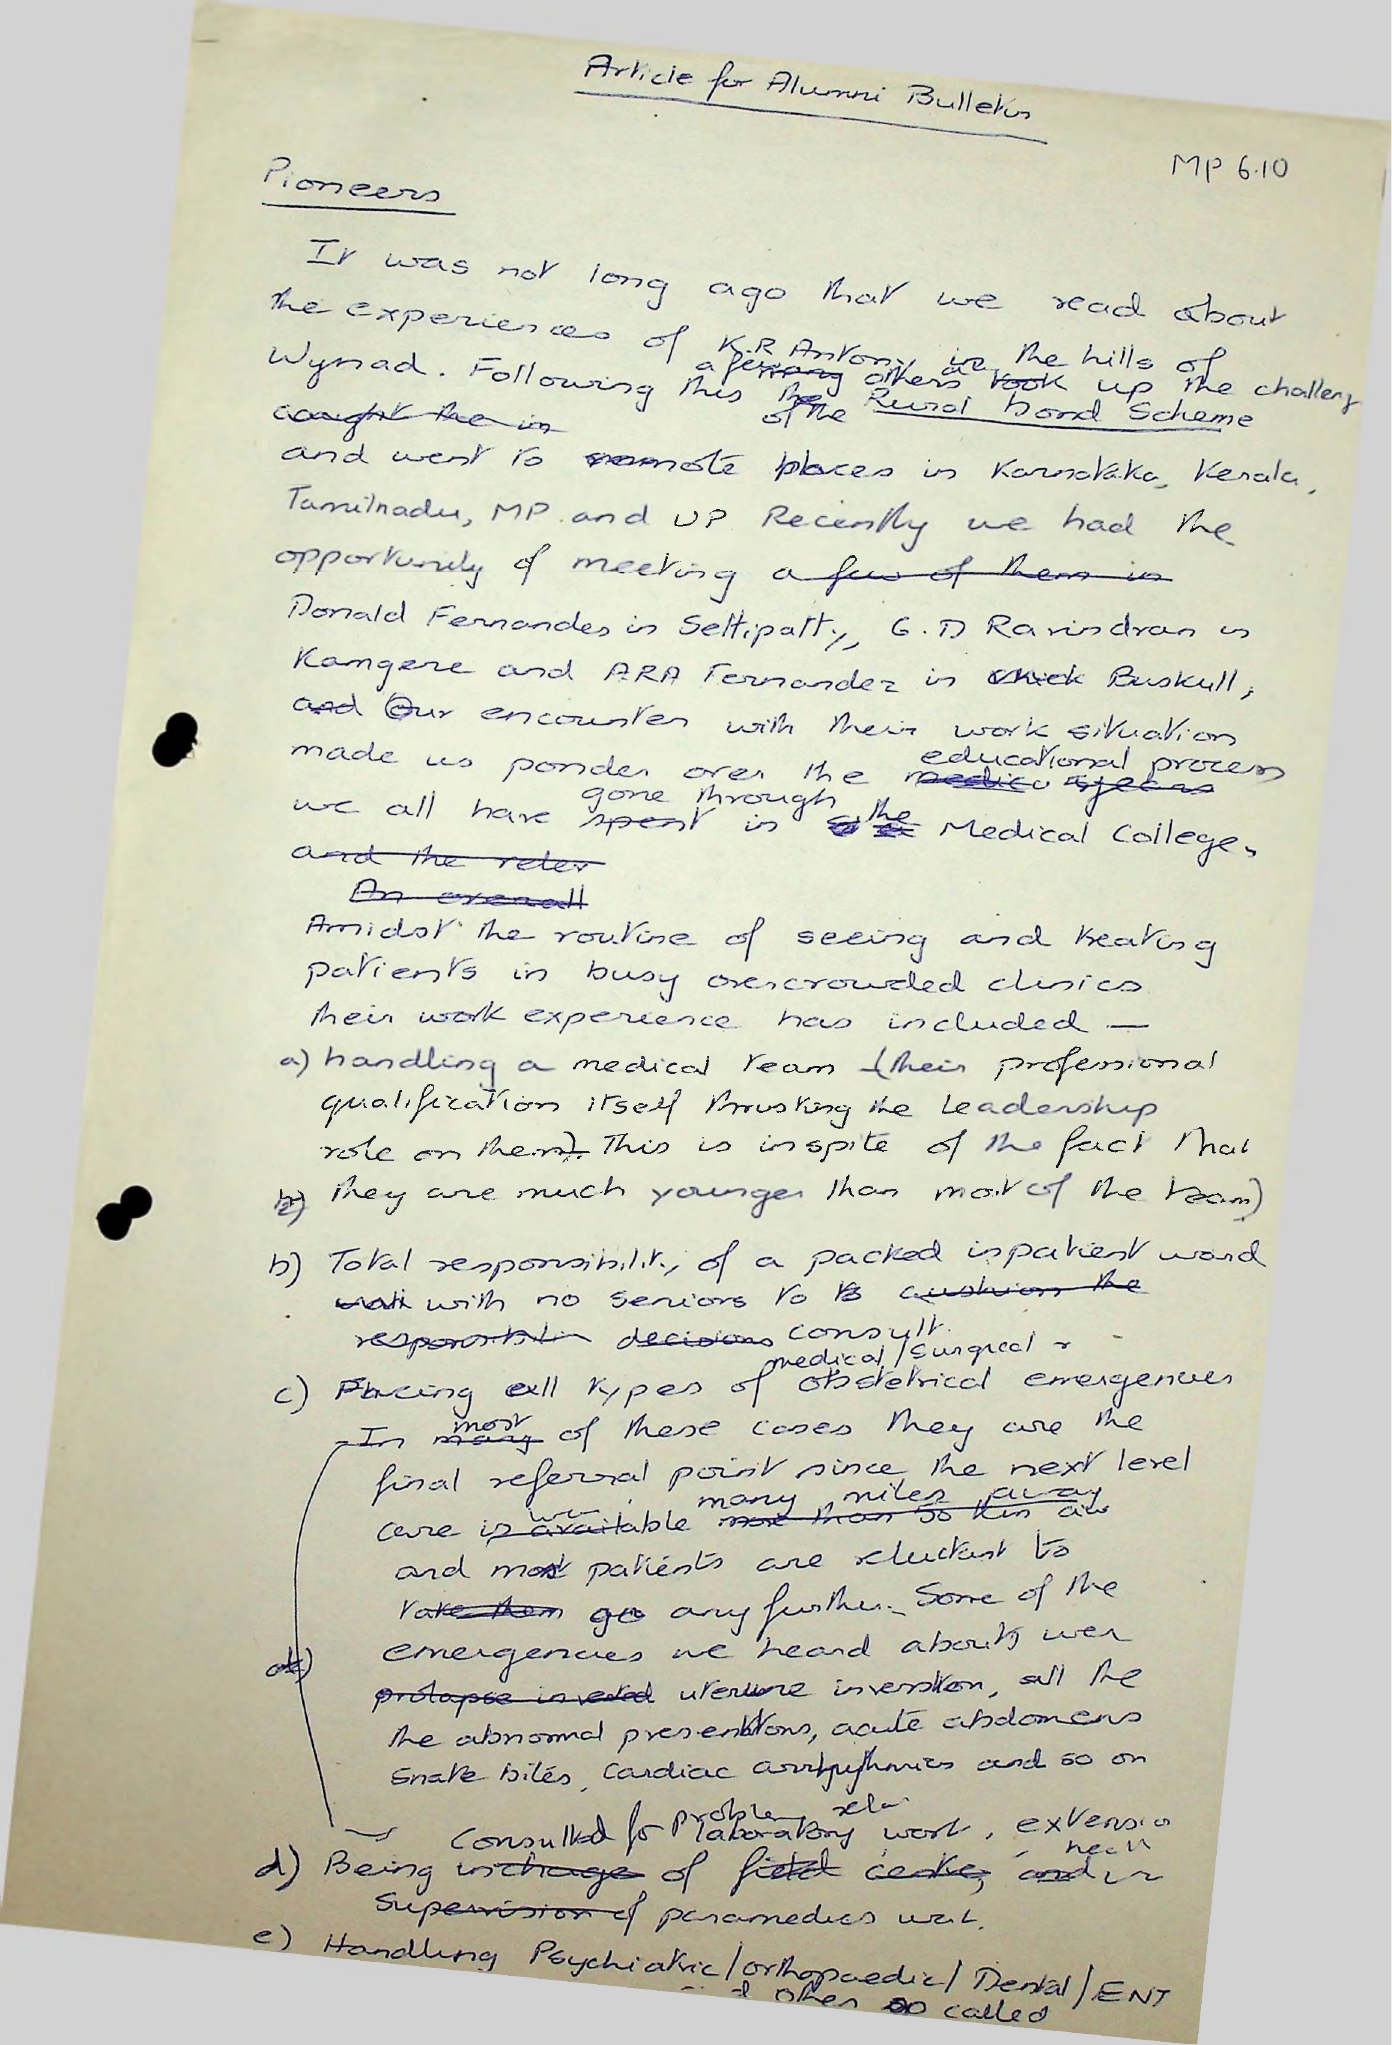 Article for Alumni Bulletin
MP 6.10
Pioneers
It was not long ago that we read about
the experiences of K.R Antony in the hills of
Wynad. Following this a few many others took up the challeng
caught the in the of the Rural bond Scheme
and went to remote places in Karnataka, Kerala,
Tamilnadu, MP and UP Recently we had the
opportunity of meeting a few of them in
Donald Fernandes in Settipatty, G.D Ravindran in
Kamgere and ARA Fernandez in Buskull,
and Our encounter with their work situation
made us ponder over the educational process
we all have gone through spent in the Medical College.
and the relev
An overall
Amidst the routine of seeing and treating
patients in busy overcrowded clinics
their work experience has included —
a) handling a medical team (their professional
qualification itself thrusting the leadership
role on them). This is inspite of the fact that
they are much younger than most of the team)
b) Total responsibility of a packed inpatient ward
with no seniors to cushion the
decisions consult.
medical/surgical
c) Facing all types of obstetrical emergencies
In most many of these cases they are the
final referral point since the next level
many miles away
care is available more than 50 km aw
and most patients are reluctant to
take them go any further. Some of the
emergencies we heard about wer
prolapse inverted uterine inversion, all the
the abnormal presentations, acute abdomens
Snake bites, cardiac arrhythmias and so on
Consulted for problem rela
laboratory work, extensio
d) Being incharge of field centre, and
Supervision of paramedics
e) Handling Psychiatric/orthopaedic/Dental/ENT
other so called